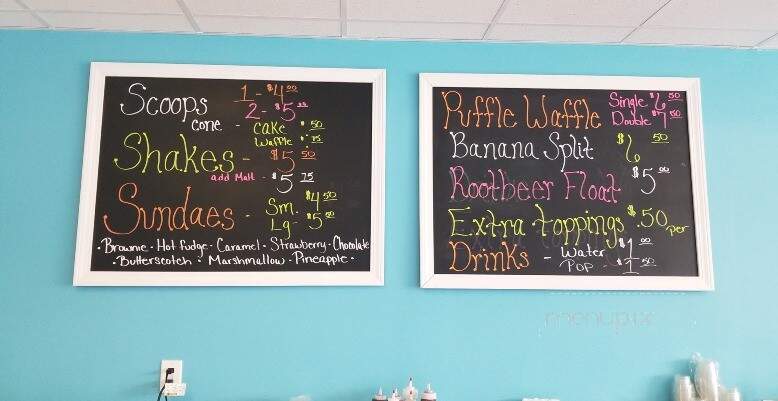 Scoops 1 - $4.00
2 - $5.00
cone - cake $.50
Waffle $.75
Shakes - $5.50
add Malt - $5.75
Sundaes - Sm. $4.50
Lg - $5.50
· Brownie · Hot fudge · Caramel · Strawberry · Chocolate
· Butterscotch · Marshmallow · Pineapple ·
Puffle Waffle Single $6.50
Double $7.50
Banana Split $6.50
Rootbeer Float $5.00
Extra toppings $.50 per
Drinks - Water $1.00
POP - $1.50
menupix